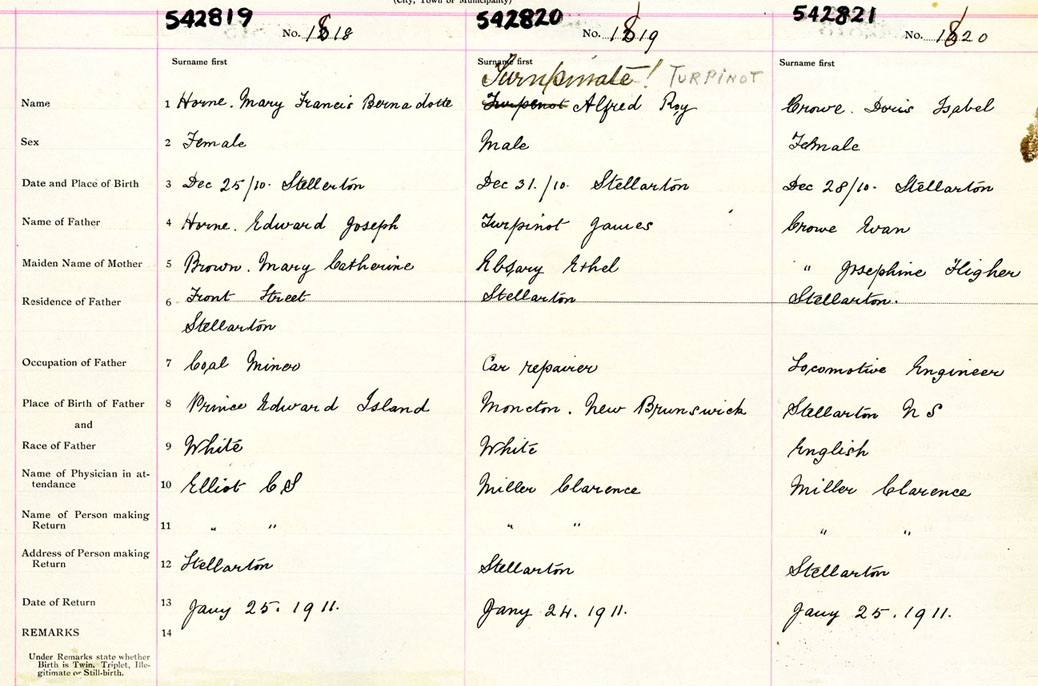 (City, Town or Municipality)
542819 542820 542821
No. 1818 No. 1819 No. 1820
Surname first Surname first Surname first
Turnpinate! TURPINOT
Name 1 Horne. Mary Francis Bernadotte Turpinot Alfred Roy Crowe. Doris Isabel
Sex 2 Female Male Female
Date and Place of Birth 3 Dec 25/10. Stellerton Dec 31./10. Stellarton Dec 28/10. Stellarton
Name of Father 4 Horne. Edward Joseph Turpinot James Crowe Evan
Maiden Name of Mother 5 Brown. Mary Catherine Ethel " Josephine Higher
Residence of Father 6 Front Street Stellarton Stellarton.
Stellarton
Occupation of Father 7 Coal Miner Car repairer Locomotive Engineer
Place of Birth of Father 8 Prince Edward Island Moncton. New Brunswick Stellarton N S
and
Race of Father 9 White White English
Name of Physician in at-
tendance 10 Elliot C S Miller Clarence Miller Clarence
Name of Person making
Return 11 " " " " " "
Address of Person making
Return 12 Stellarton Stellarton Stellarton
Date of Return 13 Jany 25. 1911. Jany 24. 1911. Jany 25. 1911.
REMARKS 14
Under Remarks state whether
Birth is Twin, Triplet, Ille-
gitimate or Still-birth.